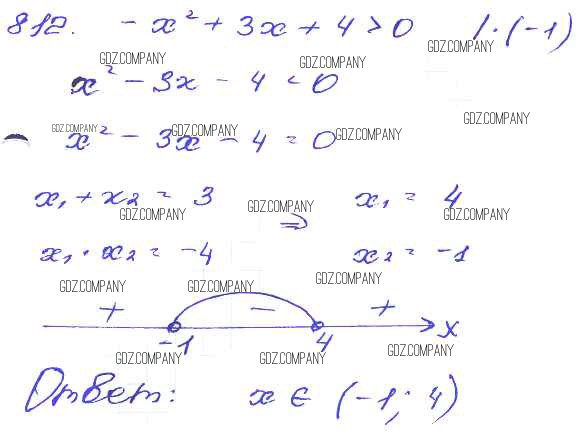 812. -x² + 3x + 4 > 0 / · (-1)
GDZ.COMPANY GDZ.COMPANY GDZ.COMPANY
x² - 3x - 4 < 0
GDZ.COMPANY
GDZ.COMPANY GDZ.COMPANY GDZ.COMPANY
x² - 3x - 4 = 0
x₁ + x₂ = 3 x₁ = 4
GDZ.COMPANY GDZ.COMPANY GDZ.COMPANY
⇒
x₁ · x₂ = -4 x₂ = -1
GDZ.COMPANY GDZ.COMPANY GDZ.COMPANY
+ - +
-1 4 x
GDZ.COMPANY GDZ.COMPANY GDZ.COMPANY
Ответ: x ∈ (-1; 4)